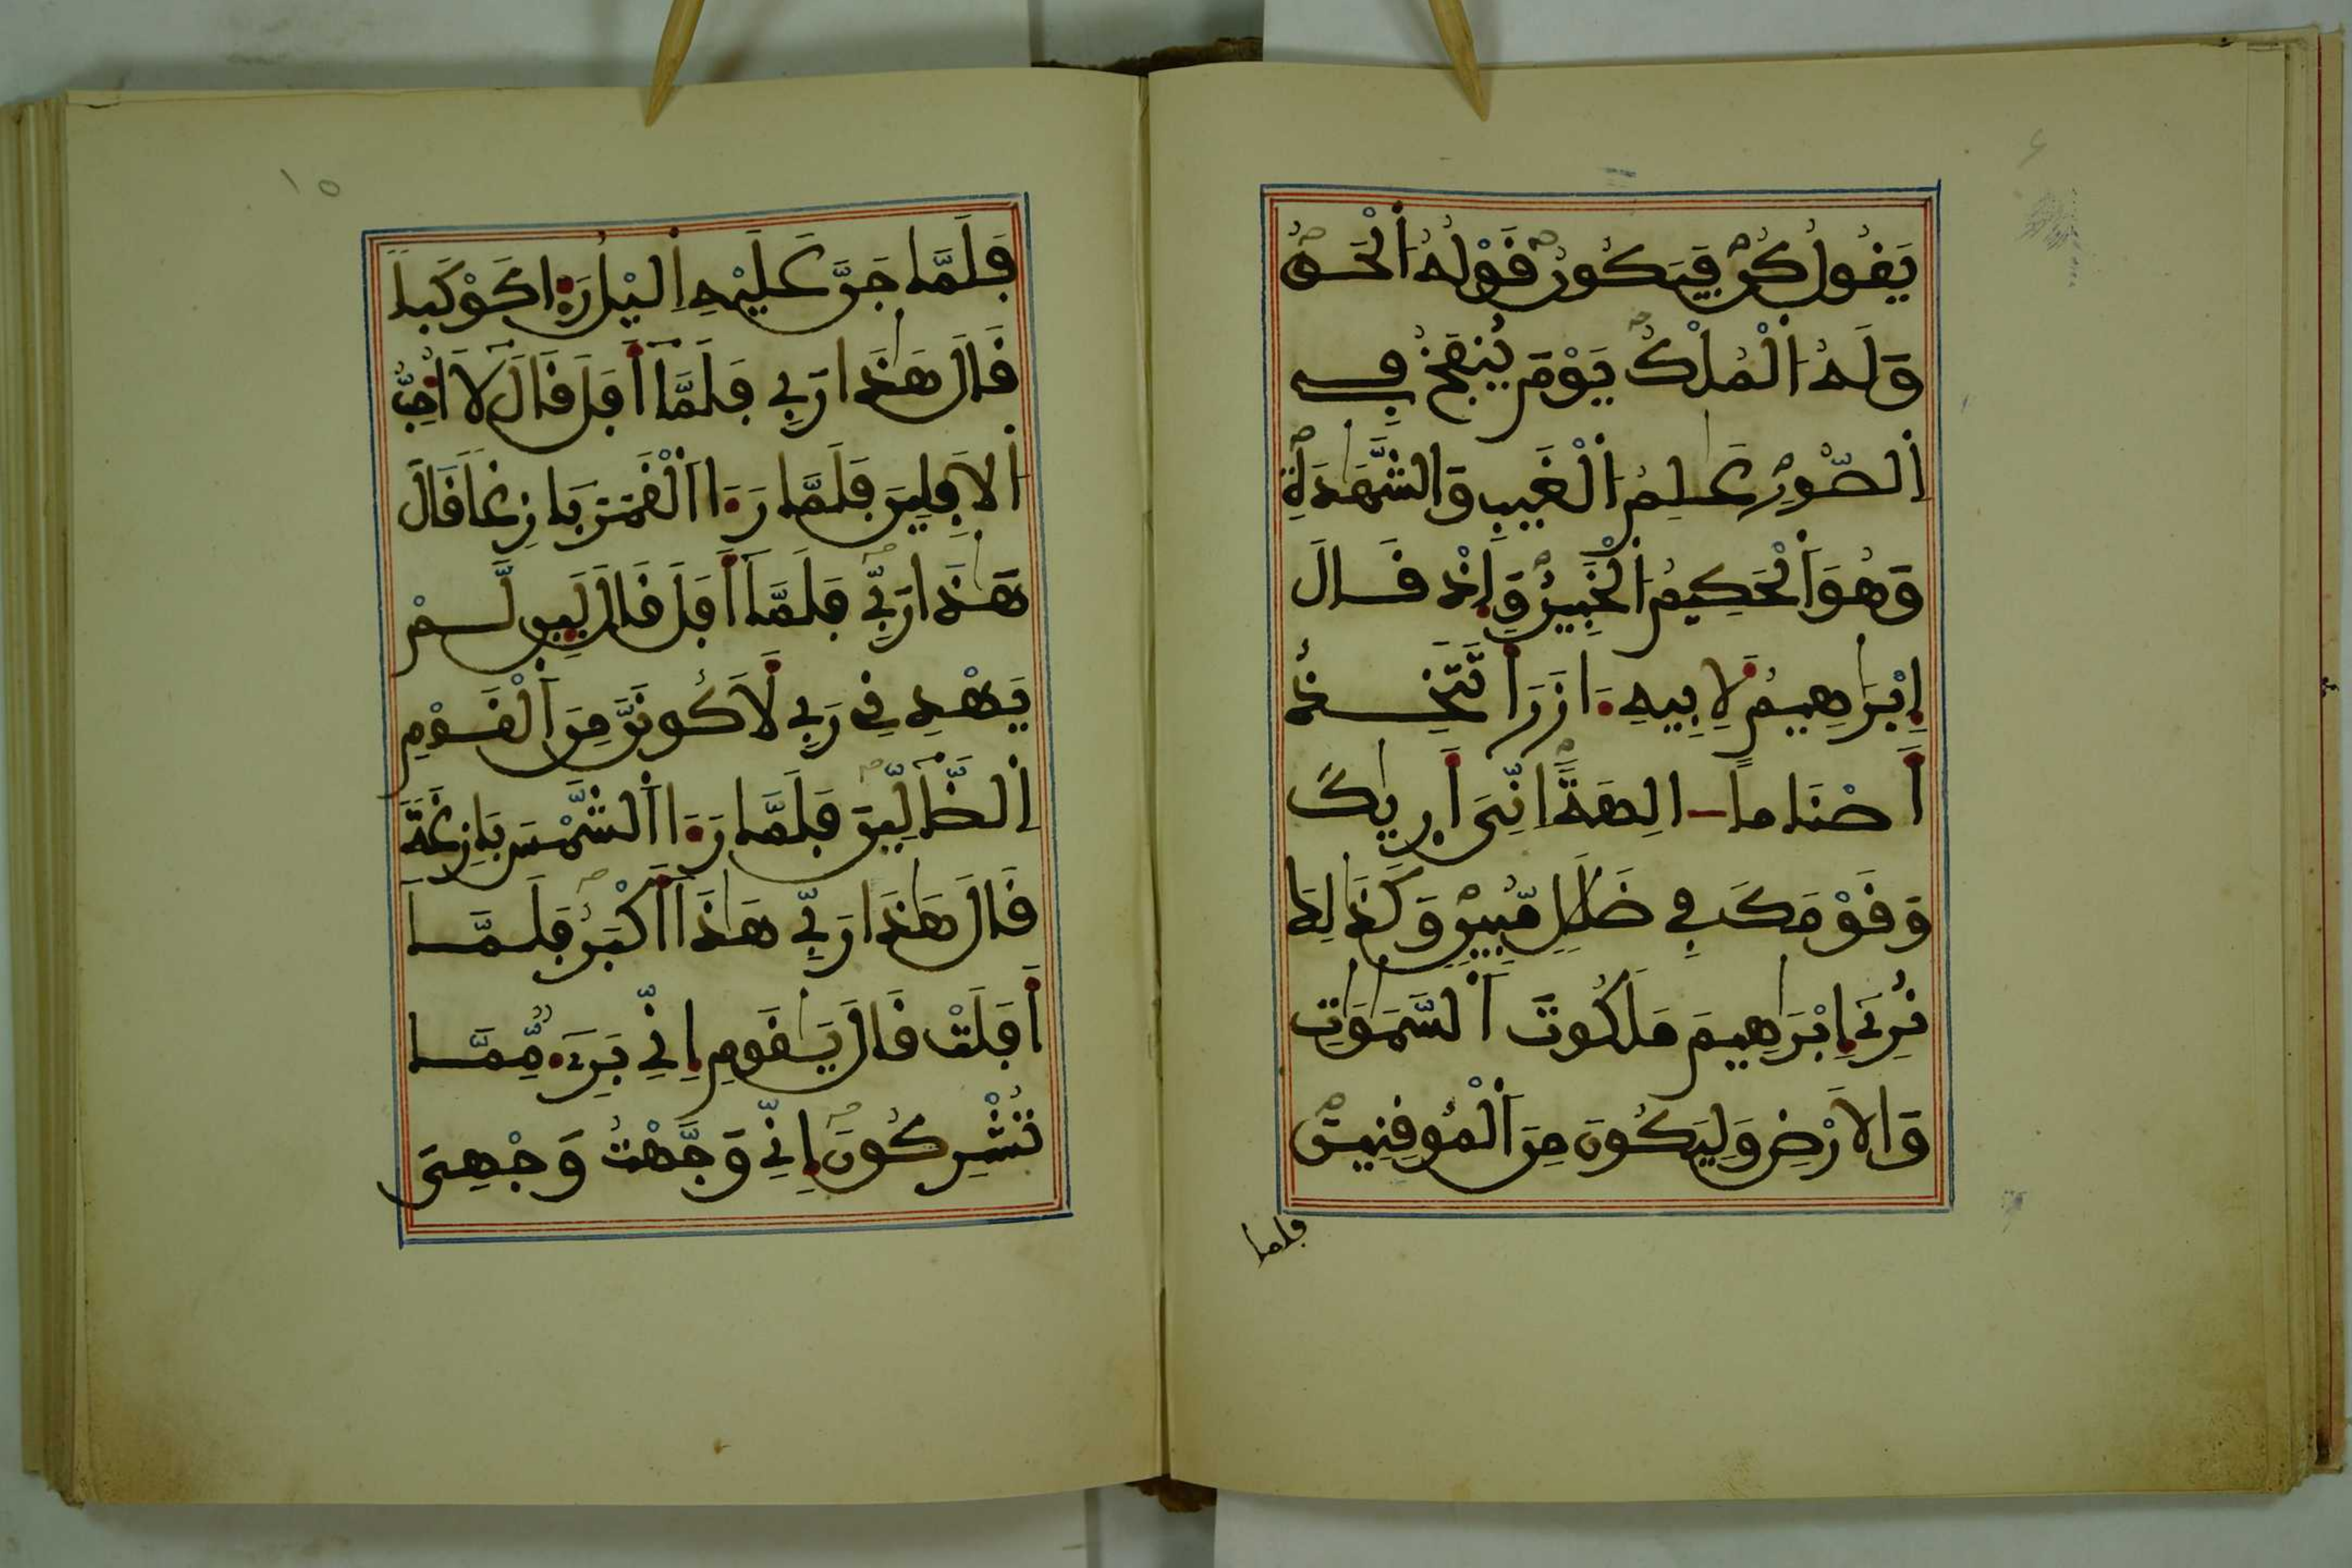 يَقُولُ كُن فَيَكُونُ قَوْلُهُ الْحَقُّ
وَلَهُ الْمُلْكُ يَوْمَ يُنفَخُ فِي
الصُّورِ عَٰلِمُ الْغَيْبِ وَالشَّهَٰدَةِ
وَهُوَ الْحَكِيمُ الْخَبِيرُ وَإِذْ قَالَ
إِبْرَٰهِيمُ لِأَبِيهِ ءَازَرَ أَتَتَّخِذُ
أَصْنَاماً ـ الِهَةً اِنِّيَ أَرٰيكَ
وَقَوْمَكَ فِي ضَلَٰلٍ مُّبِينٍ وَكَذَٰلِكَ
نُرِي إِبْرَٰهِيمَ مَلَكُوتَ السَّمَٰوَٰتِ
وَالَارْضِ وَلِيَكُونَ مِنَ الْمُوقِنِينَ
فلما
١٥
فَلَمَّا جَنَّ عَلَيْهِ اِليْلُ رَءَا كَوْكَباً
قَالَ هَٰذَا رَبِّي فَلَمَّا أَفَلَ قَالَ لَا أُحِبُّ
الَافِلِينَ فَلَمَّا رَءَا اَلْقَمَرَ بَازِغاً قَالَ
هَٰذَا رَبِّي فَلَمَّا أَفَلَ قَالَ لَئِن لَّمْ
يَهْدِنِي رَبِّي لَأَكُونَنَّ مِنَ اَلْقَوْمِ
اِلضَّالِّينَ فَلَمَّا رَءَا اَلشَّمْسَ بَازِغَةً
قَالَ هَٰذَا رَبِّي هَٰذَا أَكْبَرُ فَلَمَّا
أَفَلَتْ قَالَ يَٰقَوْمِ إِنِّي بَرِيءٌ مِّمَّا
تُشْرِكُونَ إِنِّي وَجَّهْتُ وَجْهِيَ